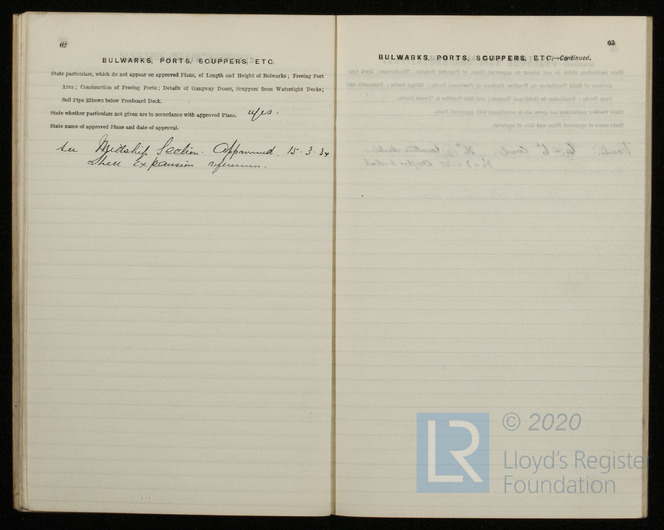 62
BULWARKS, PORTS, SCUPPERS, ETC.
State particulars, which do not appear on approved Plans, of Length and Height of Bulwarks; Freeing Port
Area; Construction of Freeing Ports; Details of Gangway Doors, Scuppers from Watertight Decks;
Soil Pipe Elbows below Freeboard Deck.
State whether particulars not given are in accordance with approved Plans. yes.
State name of approved Plans and date of approval.
see Midship Section. Approved. 15. 3. 34
Shell Expansion
63
BULWARKS, PORTS, SCUPPERS, ETC.—Continued.
LR
© 2020
Lloyd's Register
Foundation